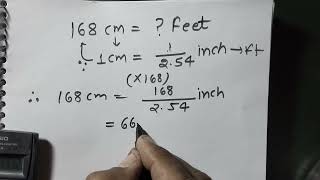 168 cm = ? feet
∴ 1 cm = 1/2.54 inch → ft
(×168)
∴ 168 cm = 168/2.54 inch
= 66